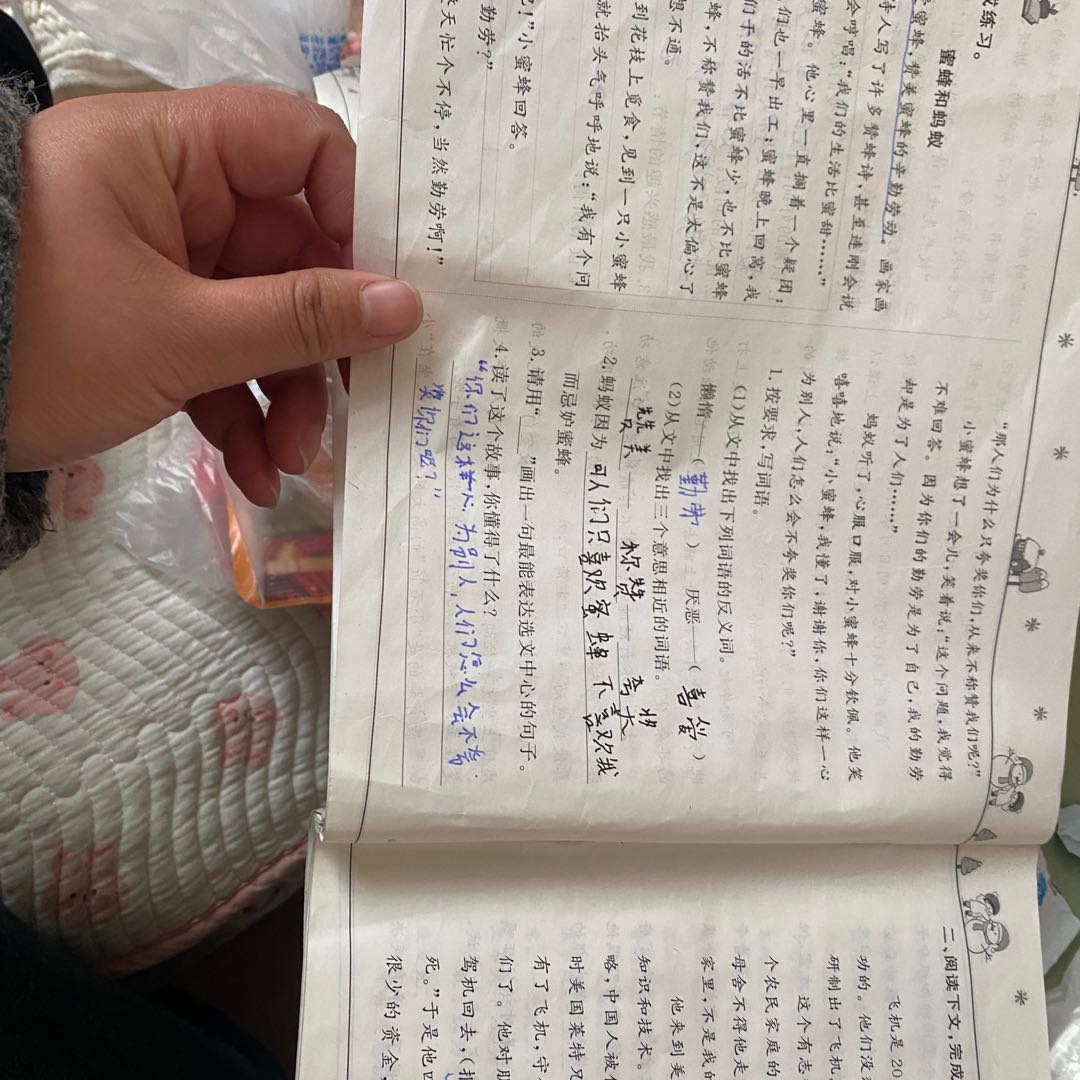 成练习。
蜜蜂和蚂蚁
蜜蜂,赞美蜜蜂的辛勤劳动。画家画
诗人写了许多赞蜂诗,甚至连刚会说
会哼唱:“我们的生活比蜜甜……”
蜜蜂。他心里一直搁着一个疑团:
们也一早出工;蜜蜂晚上回窝,我
们干的活不比蜜蜂少,也不比蜜蜂
蜂,不称赞我们,这不是太偏心了
想不通。
到花枝上觅食,见到一只小蜜蜂
就抬头气呼呼地说:“我有个问
!”小蜜蜂回答。
勤劳?”
天忙个不停,当然勤劳啊!”
“那人们为什么只夸奖你们,从来不称赞我们呢?”
小蜜蜂想了一会儿,笑着说:“这个问题,我觉得
不难回答。因为你们的勤劳是为了自己,我的勤劳
却是为了人们……”
蚂蚁听了,心服口服,对小蜜蜂十分钦佩。他笑
嘻嘻地说:“小蜜蜂,我懂了,谢谢你,你们这样一心
为别人,人们怎么会不夸奖你们呢?”
1. 按要求,写词语。
(1)从文中找出下列词语的反义词。
懒惰——(勤劳) 厌恶——(喜爱)
(2)从文中找出三个意思相近的词语。
称赞 夸奖
2. 蚂蚁因为 人们只喜欢蜜蜂不喜欢我
而忌妒蜜蜂。
3. 请用“ ”画出一句最能表达选文中心的句子。
4. 读了这个故事,你懂得了什么?
“你们这样一心为别人,人们怎么会不夸
奖你们呢?”
二、阅读下文,完成
飞机是20
功的。他们没
研制出了飞机。
这个有志
个农民家庭的
母舍不得他走
家里,不是我的
他来到美
知识和技术。
略,中国人被
时美国莱特兄
有了飞机,守
们了。他对朋
驾机回去,(报
死。”于是他四
很少的资金,